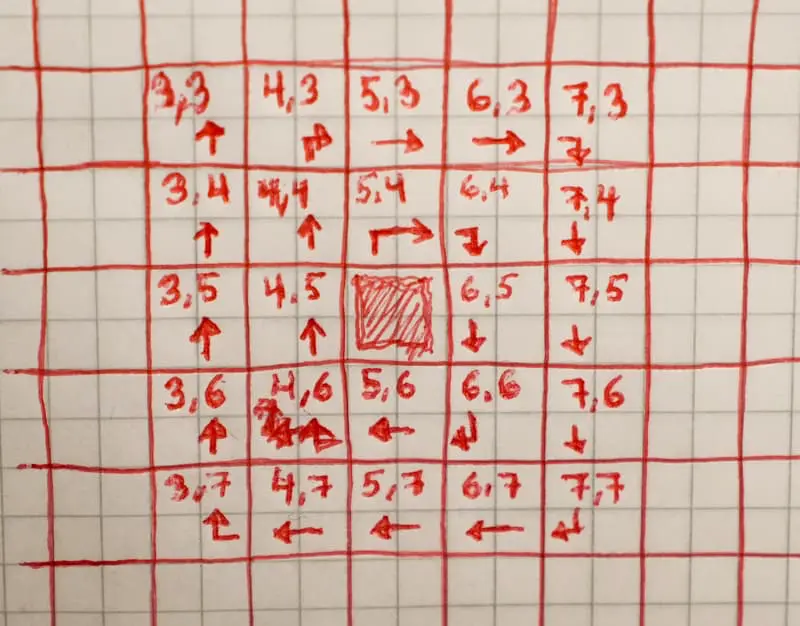 3,3 4,3 5,3 6,3 7,3
3,4 4,4 5,4 6,4 7,4
3,5 4,5 6,5 7,5
3,6 4,6 5,6 6,6 7,6
3,7 4,7 5,7 6,7 7,7